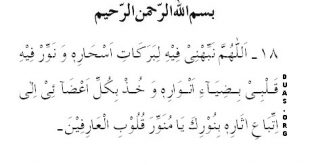 بسم الله الرّحمن الرّحيم
١٨- اَللّٰهُمَّ نَبِّهْنِىْ فِيْهِ لِبَرَكَاتِ اَسْحَارِهٖ وَ نَوِّرْ فِيْهِ
قَلْبِىْ بِضِيَآءِ اَنْوَارِهٖ وَ خُذْ بِكُلِّ اَعْضَآئِىْ اِلٰى
اِتِّبَاعِ اٰثَارِهٖ بِنُوْرِكَ يَا مُنَوِّرَ قُلُوْبِ الْعَارِفِيْنَ۔
DUAS.ORG